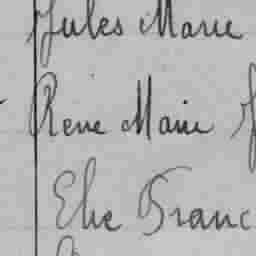 Jules Marie
René Marie J
Elie Franc